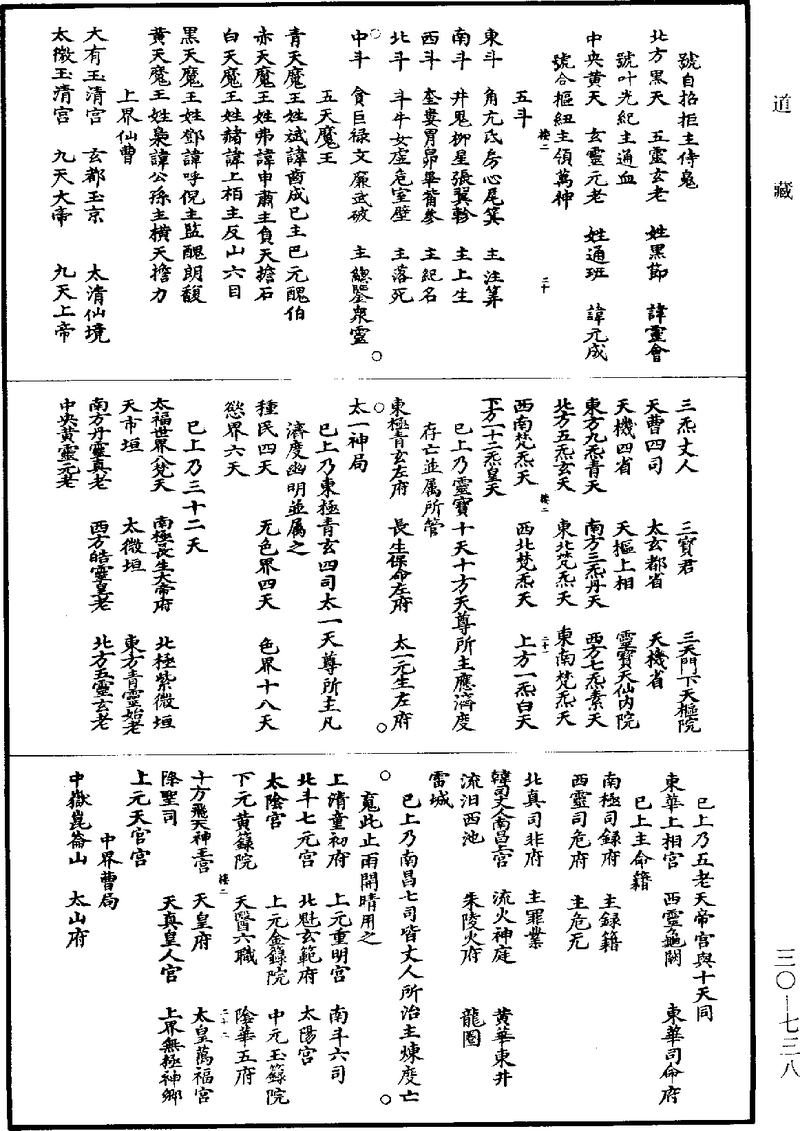 道藏
號自招拒主侍鬼
北方黑天　五靈玄老　姓黑節　諱靈會
號叶光紀主通血
中央黃天　玄靈元老　姓通班　諱元成
號含樞紐主領萬神
五斗
東斗　角亢氐房心尾箕　主注筭
南斗　井鬼柳星張翼軫　主上生
西斗　奎婁胃昴畢觜參　主紀名
北斗　斗牛女虛危室壁　主落死
中斗　貪巨祿文廉武破　主總鑒衆靈
五天魔王
青天魔王姓斌諱啇成巳主巴元醜伯
赤天魔王姓弗諱申肅主負天擔石
白天魔王姓赭諱上栢主反山六目
黑天魔王姓鄧諱呼倪主監醜朗馥
黃天魔王姓梟諱公孫主橫天擔力
上界仙曹
大有玉清宮　玄都玉京　太清仙境
太微玉清宮　九天大帝　九天上帝
三炁丈人　三寶君　三天門下天樞院
天曹四司　太玄都省　天機省
天機四省　天樞上相　靈寶天仙內院
東方九炁青天　南方三炁丹天　西方七炁素天
北方五炁玄天　東北梵炁天　東南梵炁天
西南梵炁天　西北梵炁天　上方一炁白天
下方十二炁皇天
已上乃靈寶十天十方天尊所主應濟度
存亡並属所管
東極青玄左府　長生保命左府　太一元生左府
太一神局
已上乃東極青玄四司太一天尊所主凡
濟度幽明並属之
種民四天　无色界四天　色界十八天
慾界六天
已上乃三十二天
太福世界八梵天　南極長生大帝府　北極紫微垣
天市垣　太微垣　東方青靈始老
南方丹靈真老　西方皓靈皇老　北方五靈玄老
中央黃靈元老
已上乃五老天帝宮與十天同
東華上相宮　西靈龜闕　東華司命府
已上主命籍
南極司錄府　主錄籍
西靈司危府　主危厄
北真司非府　主罪業
韓司丈人南昌宮　流火神庭　黃華東井
流汨西池　朱陵火府　龍圈
雷城
已上乃南昌七司皆丈人所治主煉度亡
䰟此止雨開晴用之
上清童初府　上元重明宮　南斗六司
北斗七元宮　北魁玄範府　太陽宮
太陰宮　上元金籙院　中元玉籙院
下元黃籙院　天醫六職　陰華五府
十方飛天神王宮　天皇府　太皇萬福宮
降聖司　天真皇人宮　上界無極神鄉
上元天官宮
中界曹局
中嶽崑崙山　太山府
三〇—七三八